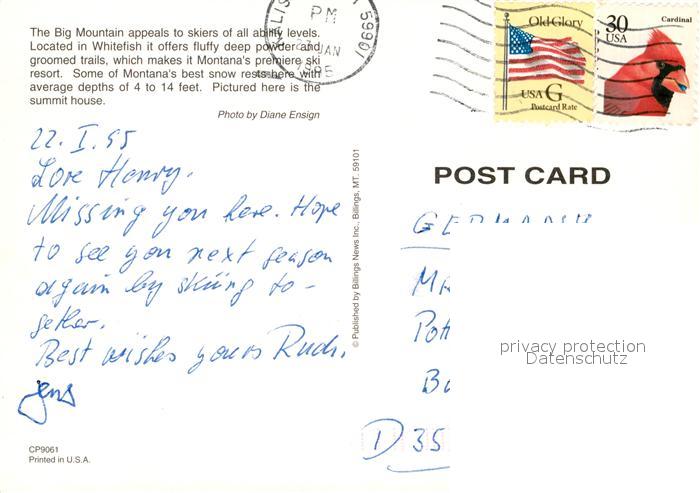 The Big Mountain appeals to skiers of all ability levels.
Located in Whitefish it offers fluffy deep powder and
groomed trails, which makes it Montana's premiere ski
resort. Some of Montana's best snow rests here with
average depths of 4 to 14 feet. Pictured here is the
summit house.
Photo by Diane Ensign
PM
JAN
59901
Old Glory
USA G
Postcard Rate
30
USA
Cardinal
22. I. 95
Love Henry.
Missing you here. Hope
to see you next season
again by skiing to-
gether.
Best wishes yours Rudi.
Jens
CP9061
Printed in U.S.A.
© Published by Billings News Inc., Billings, MT. 59101
POST CARD
GERMANY
D 35
privacy protection
Datenschutz